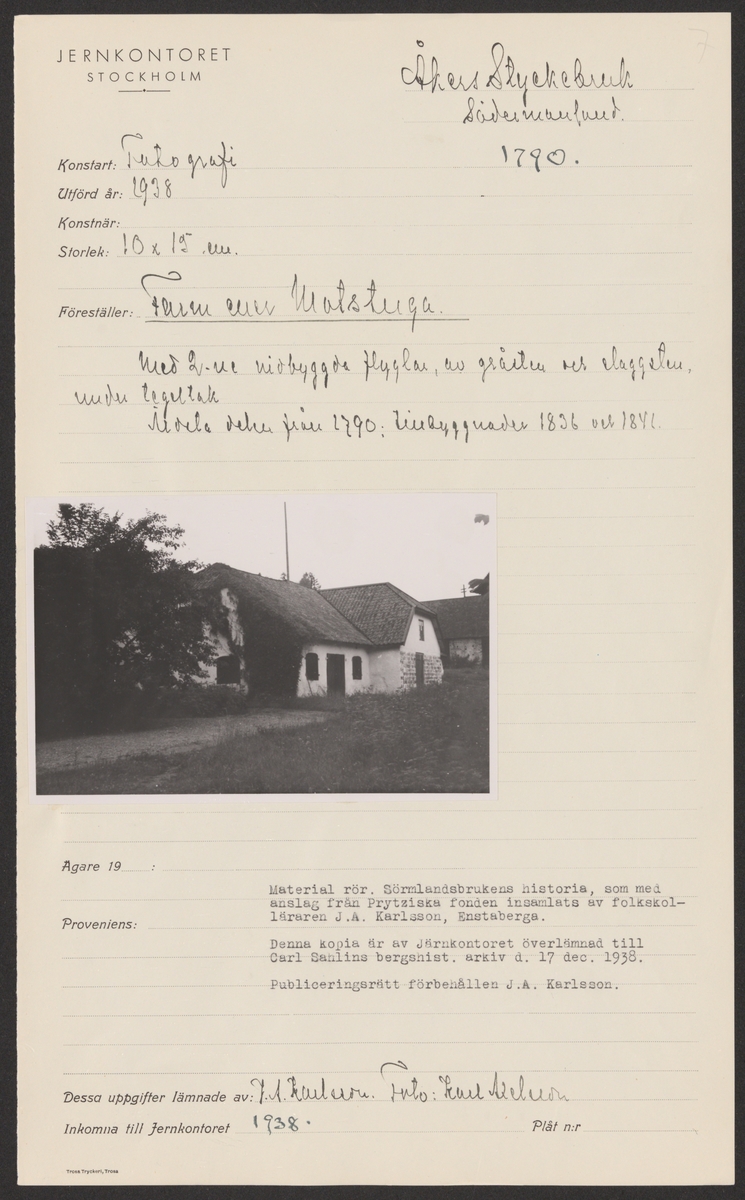 JERNKONTORET
STOCKHOLM
Åkers Styckebruk
Södermanland.
1790.
7
Konstart: Fotografi
Utförd år: 1938
Konstnär:
Storlek: 10 x 15 cm.
Föreställer: Farm eller Matstuga.
Med 2-ne vidbyggda flyglar, av gråsten och slaggsten,
under tegeltak
Äldsta delen från 1790; tillbyggnader 1836 och 1841.
Ägare 19 :
Proveniens:
Material rör. Sörmlandsbrukens historia, som med
anslag från Prytziska fonden insamlats av folkskol-
läraren J.A. Karlsson, Enstaberga.
Denna kopia är av Järnkontoret överlämnad till
Carl Sahlins bergshist. arkiv d. 17 dec. 1938.
Publiceringsrätt förbehållen J.A. Karlsson.
Dessa uppgifter lämnade av: J.A. Karlsson. Foto: Karl Axelsson
Inkomna till Jernkontoret 1938.
Plåt n:r
Trosa Tryckeri, Trosa